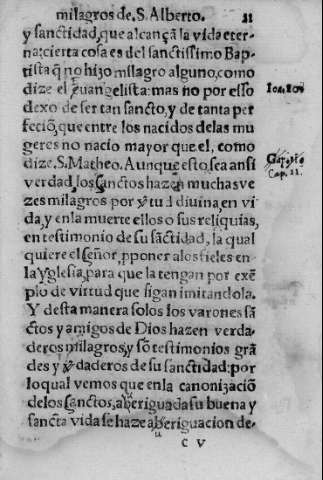 milagros de. S. Alberto. 21
y sanctidad, que alcançã la vida eter-
na: cierta cosa es del sanctissimo Bap-
tista q̃ no hizo milagro alguno, como
dize el euangelista: mas no por esso
dexo de ser tan sancto, y de tanta per
feciõ, que entre los nacidos delas mu
geres no nacio mayor que el, como
dize. S. Matheo. Aunque esto sea ansi
verdad, los sanctos hazen muchas ve
zes milagros por ṽtud diuina, en vi
da, y en la muerte ellos o sus reliquias,
en testimonio de su sãctidad, la qual
quiere el señor, p̱poner a los fieles en
la Yglesia, para que la tengan por exẽ
plo de virtud que sigan imitandola.
Y desta manera solos los varones sã
ctos y amigos de Dios hazen verda-
deros milagros, y sõ testimonios grã
des y ṽdaderos de su sanctidad: por
lo qual vemos que en la canonizaciõ
de los sanctos, aberiguada su buena y
sancta vida se haze aberiguacion de-
u
C V
Ioa. 10.
Cap. 11.